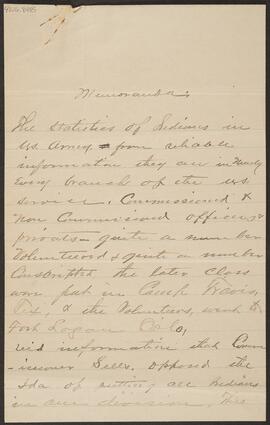 Memoranda.
The statistics of Indians in
US Army — from reliable
information they are in Nearly
Every branch of the US
service. Commissioned &
Non Commissioned officers &
privats — quite a number
Volunteered & quite a number
Conscripted the later class
were put in Camp Travis,
Tex, & the Volunteers, went to
Fort Logan Colo,
rec'd information that Comm-
issioner Sells. opposed the
Ida of putting all Indians
in one division. This